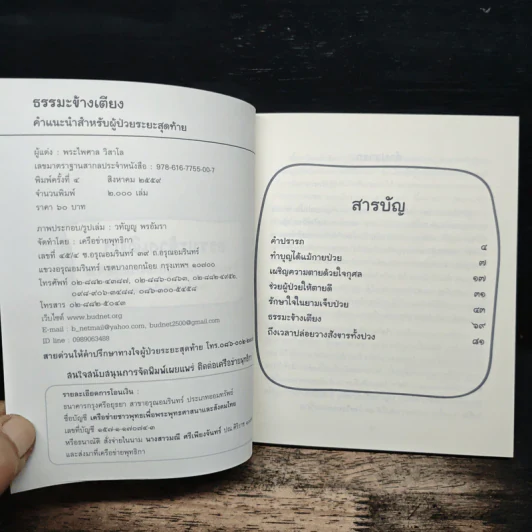 ธรรมะข้างเตียง
คำแนะนำสำหรับผู้ป่วยระยะสุดท้าย
ผู้แต่ง : พระไพศาล วิสาโล
เลขมาตรฐานสากลประจำหนังสือ : 978-616-7755-00-7
พิมพ์ครั้งที่ ๔ สิงหาคม ๒๕๕๙
จำนวนพิมพ์ ๒,๐๐๐ เล่ม
ราคา ๖๐ บาท
ภาพประกอบ/รูปเล่ม : วทัญญู พรอัมรา
จัดทำโดย : เครือข่ายพุทธิกา
เลขที่ ๔๕/๔ ซ.อรุณอมรินทร์ ๓๙ ถ.อรุณอมรินทร์
แขวงอรุณอมรินทร์ เขตบางกอกน้อย กรุงเทพฯ ๑๐๗๐๐
โทรศัพท์ ๐๒-๘๘๒-๔๓๘๗, ๐๒-๘๘๖-๐๘๖๓, ๐๒-๘๘๒-๔๙๕๒,
โทรสาร ๐๒-๘๘๒-๕๐๔๓
เว็บไซต์ www.budnet.org
E-mail : b_netmail@yahoo.com, budnet2500@gmail.com
ID line : 0989063488
สายด่วนให้คำปรึกษาทางใจผู้ป่วยระยะสุดท้าย โทร.
สนใจสนับสนุนการจัดพิมพ์เผยแพร่ ติดต่อเครือข่ายพุทธิกา
รายละเอียดการโอนเงิน :
ธนาคารกรุงศรีอยุธยา สาขาอรุณอมรินทร์ ประเภทออมทรัพย์
ชื่อบัญชี เครือข่ายชาวพุทธเพื่อพระพุทธศาสนาและสังคมไทย
เลขที่บัญชี ๑๕๗-๑-๑๗๐๗๔-๓
หรือธนาณัติ สั่งจ่ายในนาม นางสาวมณี ศรีเพียงจันทร์ ปณ.ศิริราช
และส่งมาที่เครือข่ายพุทธิกา
สารบัญ
คำปรารภ ๔
ทำบุญได้แม้กายป่วย ๗
เผชิญความตายด้วยใจกุศล ๑๗
ช่วยผู้ป่วยให้ตายดี ๓๑
รักษาใจในยามเจ็บป่วย ๔๓
ธรรมะข้างเตียง ๖๙
ถึงเวลาปล่อยวางสังขารทั้งปวง ๘๑